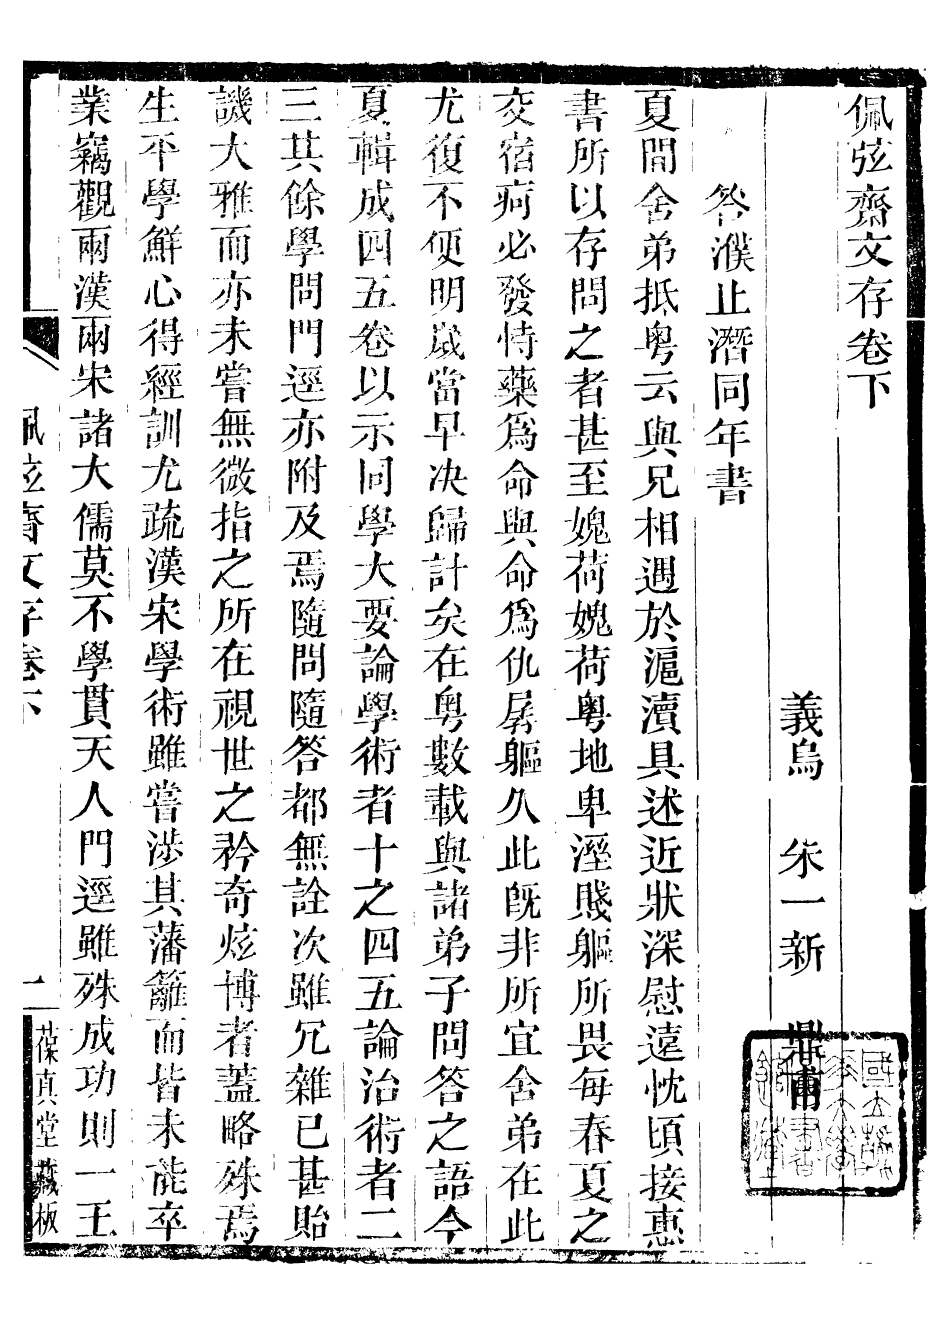 佩弦齋文存卷下
義烏 朱一新 鼎甫
答濮止潛同年書
夏間舍弟抵粤云與兄相遇於滬瀆具述近狀深慰遠忱頃接惠
書所以存問之者甚至媿荷媿荷粤地卑溼賤軀所畏每春夏之
交宿疴必發恃藥爲命與命爲仇孱軀久此旣非所宜舍弟在此
尤復不便明嵗當早决歸計矣在粤數載與諸弟子問答之語今
夏輯成四五卷以示同學大要論學術者十之四五論治術者二
三其餘學問門逕亦附及焉隨問隨答都無詮次雖冗雜已甚貽
譏大雅而亦未嘗無微指之所在視世之矜奇炫博者蓋略殊焉
生平學鮮心得經訓尤疏漢宋學術雖嘗涉其藩籬而皆未能卒
業竊觀兩漢兩宋諸大儒莫不學貫天人門逕雖殊成功則一王
佩弦齋文存卷下
一
葆真堂藏板